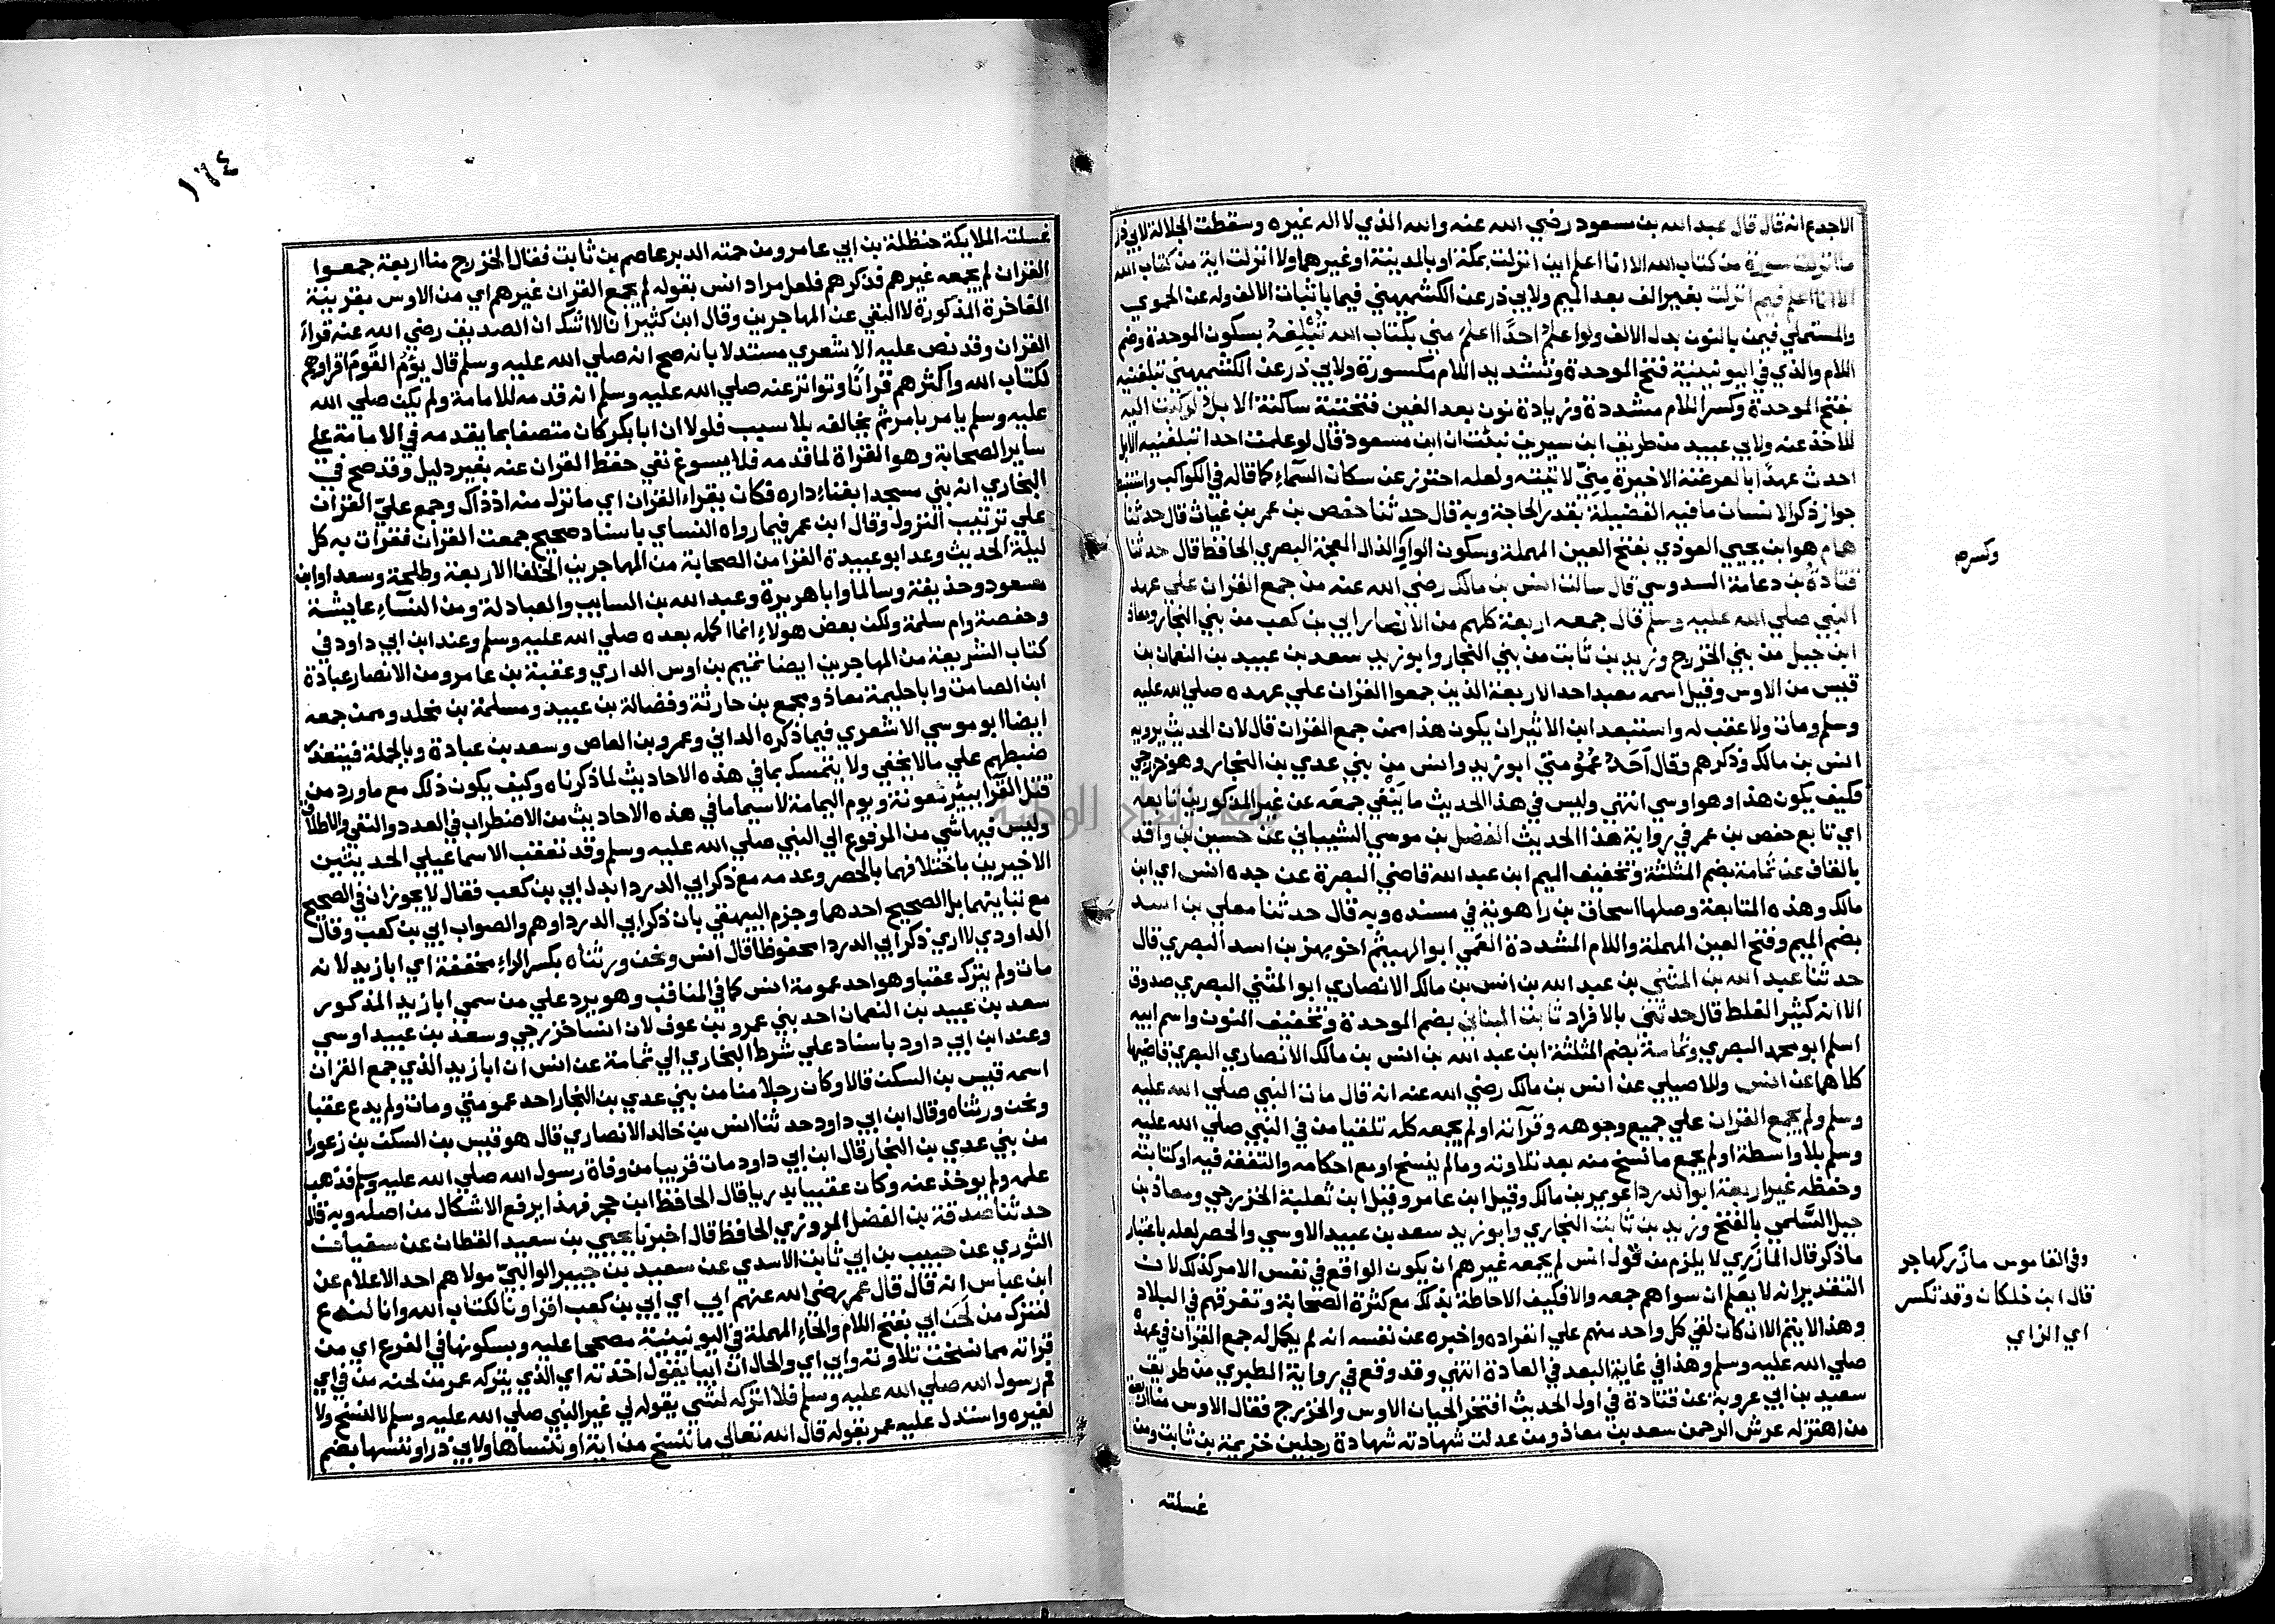 الاجدع انه قال قال عبد الله بن مسعود رضي الله عنه والله الذي لا اله غيره وسقطت الجلالة لابي ذر
ما انزلت سورة من كتاب الله الا انا اعلم اين انزلت بمكة او بالمدينة او غيرهما ولا انزلت اية من كتاب الله
الا انا اعلم فيم انزلت بغير الف بعد الميم ولابي ذر عن الكشميهني فيما باثبات الالف وله عن الحموي
والمستملي فيمن بالنون بدل الالف ولو اعلم احدا اعلم مني بكتاب الله تبلغه بسكون الموحدة وضم
اللام والذي في اليونينية فتح الموحدة وتشديد اللام مكسورة ولابي ذر عن الكشميهني تبلغنيه
بفتح الموحدة وكسر اللام مشددة وزيادة نون بعد الغين فتحتية ساكنة الابل لركبت اليه
للاخذ عنه ولابي عبيد من طريق ابن سيرين نبئت ان ابن مسعود قال لو علمت احدا تبلغنيه الابل
احدث عهدا بالعرضة الاخيرة مني لاتيته ولعله احترز عن سكان السمآء كما قاله في الكواكب واستنبط
جواز ذكر الانسان ما فيه الفضيلة بقدر الحاجة وبه قال حدثنا حفص بن عمر بن غياث قال حدثنا
همام هو ابن يحيي العوذي بفتح العين المهملة وسكون الواو والذال المعجمة البصري الحافظ قال حدثنا
وكسره
قتادة بن دعامة السدوسي قال سالت انس بن مالك رضي الله عنه من جمع القران علي عهد
النبي صلي الله عليه وسلم قال جمعه اربعة كلهم من الانصار ابي بن كعب من بني النجار ومعاذ
ابن جبل من بني الخزرج وزيد بن ثابت من بني النجار وابو زيد سعد بن عبيد بن النعمان بن
قيس من الاوس وقيل اسمه احد الاربعة الذين جمعوا القران علي عهده صلي الله عليه
وسلم ومات ولا عقب له واستبعد ابن الاثير ان يكون هذا ممن جمع القران قال لان الحديث يرويه
انس بن مالك وذكرهم وقال احد عمومتي ابو زيد وانس من بني عدي بن النجار وهو خزرجي
فكيف يكون هذا وهو اوسي انتهي وليس في هذا الحديث ما ينفي جمعه عن غير المذكورين تابعه
اي تابع حفص بن عمر في رواية هذا الحديث الفضل بن موسي الشيباني عن حسين بن واقد
بالقاف عن ثمامة بضم المثلثة وتخفيف الميم ابن عبد الله قاضي البصرة عن جده انس اي ابن
مالك وهذه المتابعة وصلها اسحاق بن راهوية في مسنده وبه قال حدثنا معلي بن اسد
بضم الميم وفتح العين المهملة واللام المشددة العمي ابو الهيثم اخو بهز بن اسد البصري قال
حدثنا عبد الله بن المثني بن عبد الله بن انس بن مالك الانصاري ابو المثني البصري صدوق
الا انه كثير الغلط قال حدثني بالافراد ثابت البناني بضم الموحدة وتخفيف النون واسم ابيه
اسلم ابو محمد البصري وثمامة بضم المثلثة ابن عبد الله بن انس بن مالك الانصاري البصري قاضيها
كلاهما عن انس وللاصيلي عن انس بن مالك رضي الله عنه انه قال مات النبي صلي الله عليه
وسلم ولم يجمع القران علي جميع وجوهه وقرآته او لم يجمعه كله تلقيا من في النبي صلي الله عليه
وسلم بلا واسطة او لم يجمع ما نسخ منه بعد تلاوته وما لم ينسخ او مع احكامه والتفقه فيه او كتابته
وحفظه غير اربعة ابو الدرداء عويمر بن مالك وقيل ابن عامر وقيل ابن ثعلبة الخزرجي ومعاذ بن
جبل السلمي بالفتح وزيد بن ثابت النجاري وابو زيد سعد بن عبيد الاوسي والحصر لعله باعتبار
ما ذكر قال المازري لا يلزم من قول انس لم يجمعه غيرهم ان يكون الواقع في نفس الامر كذلك لان
وفي القاموس مازر كهاجر
قال ابن خلكان وقد تكسر
اي الزاي
التقدير انه لا يعلم ان سواهم جمعه والا فكيف الاحاطة بذلك مع كثرة الصحابة وتفرقهم في البلاد
وهذا لا يتم الا ان كان لقي كل واحد منهم علي انفراده واخبره عن نفسه انه لم يكمل له جمع القران في عهده
صلي الله عليه وسلم وهذا في غاية البعد في العادة انتهي وقد وقع في رواية الطبري من طريق
سعيد بن ابي عروبة عن قتادة في اول الحديث افتخر الحيان الاوس والخزرج فقال الاوس منا اربعة
من اهتز له عرش الرحمن سعد بن معاذ ومن عدلت شهادته شهادة رجلين خزيمة بن ثابت ومن
غسلته
١٦٤
غسلته الملايكة حنظلة بن ابي عامر ومن حمته الدبر عاصم بن ثابت فقال الخزرج منا اربعة جمعوا
القران لم يجمعه غيرهم فذكرهم فلعل مراد انس بقوله لم يجمع القران غيرهم اي من الاوس بقرينة
المفاخرة المذكورة لا النفي عن المهاجرين وقال ابن كثير انا لا اشك ان الصديق رضي الله عنه قراء
القران وقد نص عليه الاشعري مستدلا بانه صح انه صلي الله عليه وسلم قال يؤم القوم اقراوهم
لكتاب الله واكثرهم قرانا وتواتر عنه صلي الله عليه وسلم انه قدمه للامامة ولم يكن صلي الله
عليه وسلم يامر بامر ثم يخالفه بلا سبب فلولا ان ابا بكر كان متصفا بما يقدمه في الامامة علي
ساير الصحابة وهو القراة لما قدمه فلا يسوغ نفي حفظ القران عنه بغير دليل وقد صح في
البخاري انه بني مسجدا بفناء داره فكان يقراء القران اي ما نزل منه اذ ذاك وجمع علي القران
علي ترتيب النزول وقال ابن عمر فيما رواه النساي باسناد صحيح جمعت القران فقرات به كل
ليلة الحديث وعد ابو عبيدة القرا من الصحابة من المهاجرين الخلفا الاربعة وطلحة وسعدا وابن
مسعود وحذيفة وسالما وابا هريرة وعبد الله بن السايب والعبادلة ومن النسآء عايشة
وحفصة وام سلمة ولكن بعض هولاء انما اكمله بعده صلي الله عليه وسلم وعند ابن ابي داود في
كتاب الشريعة من المهاجرين ايضا تميم بن اوس الداري وعقبة بن عامر ومن الانصار عبادة
ابن الصامت وابا حليمة معاذ ومجمع بن حارثة وفضالة بن عبيد ومسلمة بن مخلد وممن جمعه
ايضا ابو موسي الاشعري فيما ذكره الداني وعمرو بن العاص وسعد بن عبادة وبالجملة فيتعذر
ضبطهم علي ما لا يخفي ولا يتمسك بما في هذه الاحاديث لما ذكرناه وكيف يكون ذلك مع ما ورد من
قتل القرآ ببئر معونة ويوم اليمامة لا سيما ما في هذه الاحاديث من الاضطراب في العدد والنفي والاطلاق
وليس فيها شي من المرفوع الي النبي صلي الله عليه وسلم وقد تعقب الاسماعيلي الحديثين
الاخيرين باختلافهما بالحصر وعدمه مع ذكر ابي الدردا بدل ابي بن كعب فقال لا يجوزان في الصحيح
مع تباينهما بل الصحيح احدهما وجزم البيهقي بان ذكر ابي الدردا وهم والصواب ابي بن كعب وقال
الداودي لا اري ذكر ابي الدردا محفوظا قال انس ونحن ورثناه بكسر الراء مخففة اي ابا زيد لانه
مات ولم يترك عقبا وهو احد عمومة انس كما في المناقب وهو يرد علي من سمي ابا زيد المذكور
سعد بن عبيد بن النعمان احد بني عمرو بن عوف لان انسا خزرجي وسعد بن عبيد اوسي
وعند ابن ابي داود باسناد علي شرط البخاري الي ثمامة عن انس ان ابا زيد الذي جمع القران
اسمه قيس بن السكن قال وكان رجلا منا من بني عدي بن النجار احد عمومتي ومات ولم يدع عقبا
ونحن ورثناه وقال ابن ابي داود حدثنا انس بن خالد الانصاري قال هو قيس بن السكن بن زعورا
من بني عدي بن النجار قال ابن ابي داود مات قريبا من وفاة رسول الله صلي الله عليه وسلم فذهب
علمه ولم يوخذ عنه وكان عقبيا بدريا قال الحافظ ابن حجر فهذا يرفع الاشكال من اصله وبه قال
حدثنا صدقة بن الفضل المروزي الحافظ قال اخبرنا يحيي بن سعيد القطان عن سفيان
الثوري عن حبيب بن ابي ثابت الاسدي عن سعيد بن جبير الوالبي مولاهم احد الاعلام عن
ابن عباس انه قال قال عمر رضي الله عنهم ابي اي ابي بن كعب اقراونا لكتاب الله وانا لندع
لنترك من لحن ابي بفتح اللام والحاء المهملة في اليونينية مصححا عليه وبسكونها في الفرع اي من
قراته مما نسخت تلاوته وابي اي والحال ان ابيا يقول اخذته اي الذي يتركه عمر من لحنه من في اي
فم رسول الله صلي الله عليه وسلم فلا اتركه لشي يقوله لي غير النبي صلي الله عليه وسلم لا لنسخ ولا
لغيره واستدل عليه عمر بقوله قال الله تعالي ما ننسخ من اية او ننساها ولابي ذر او ننسها بضم